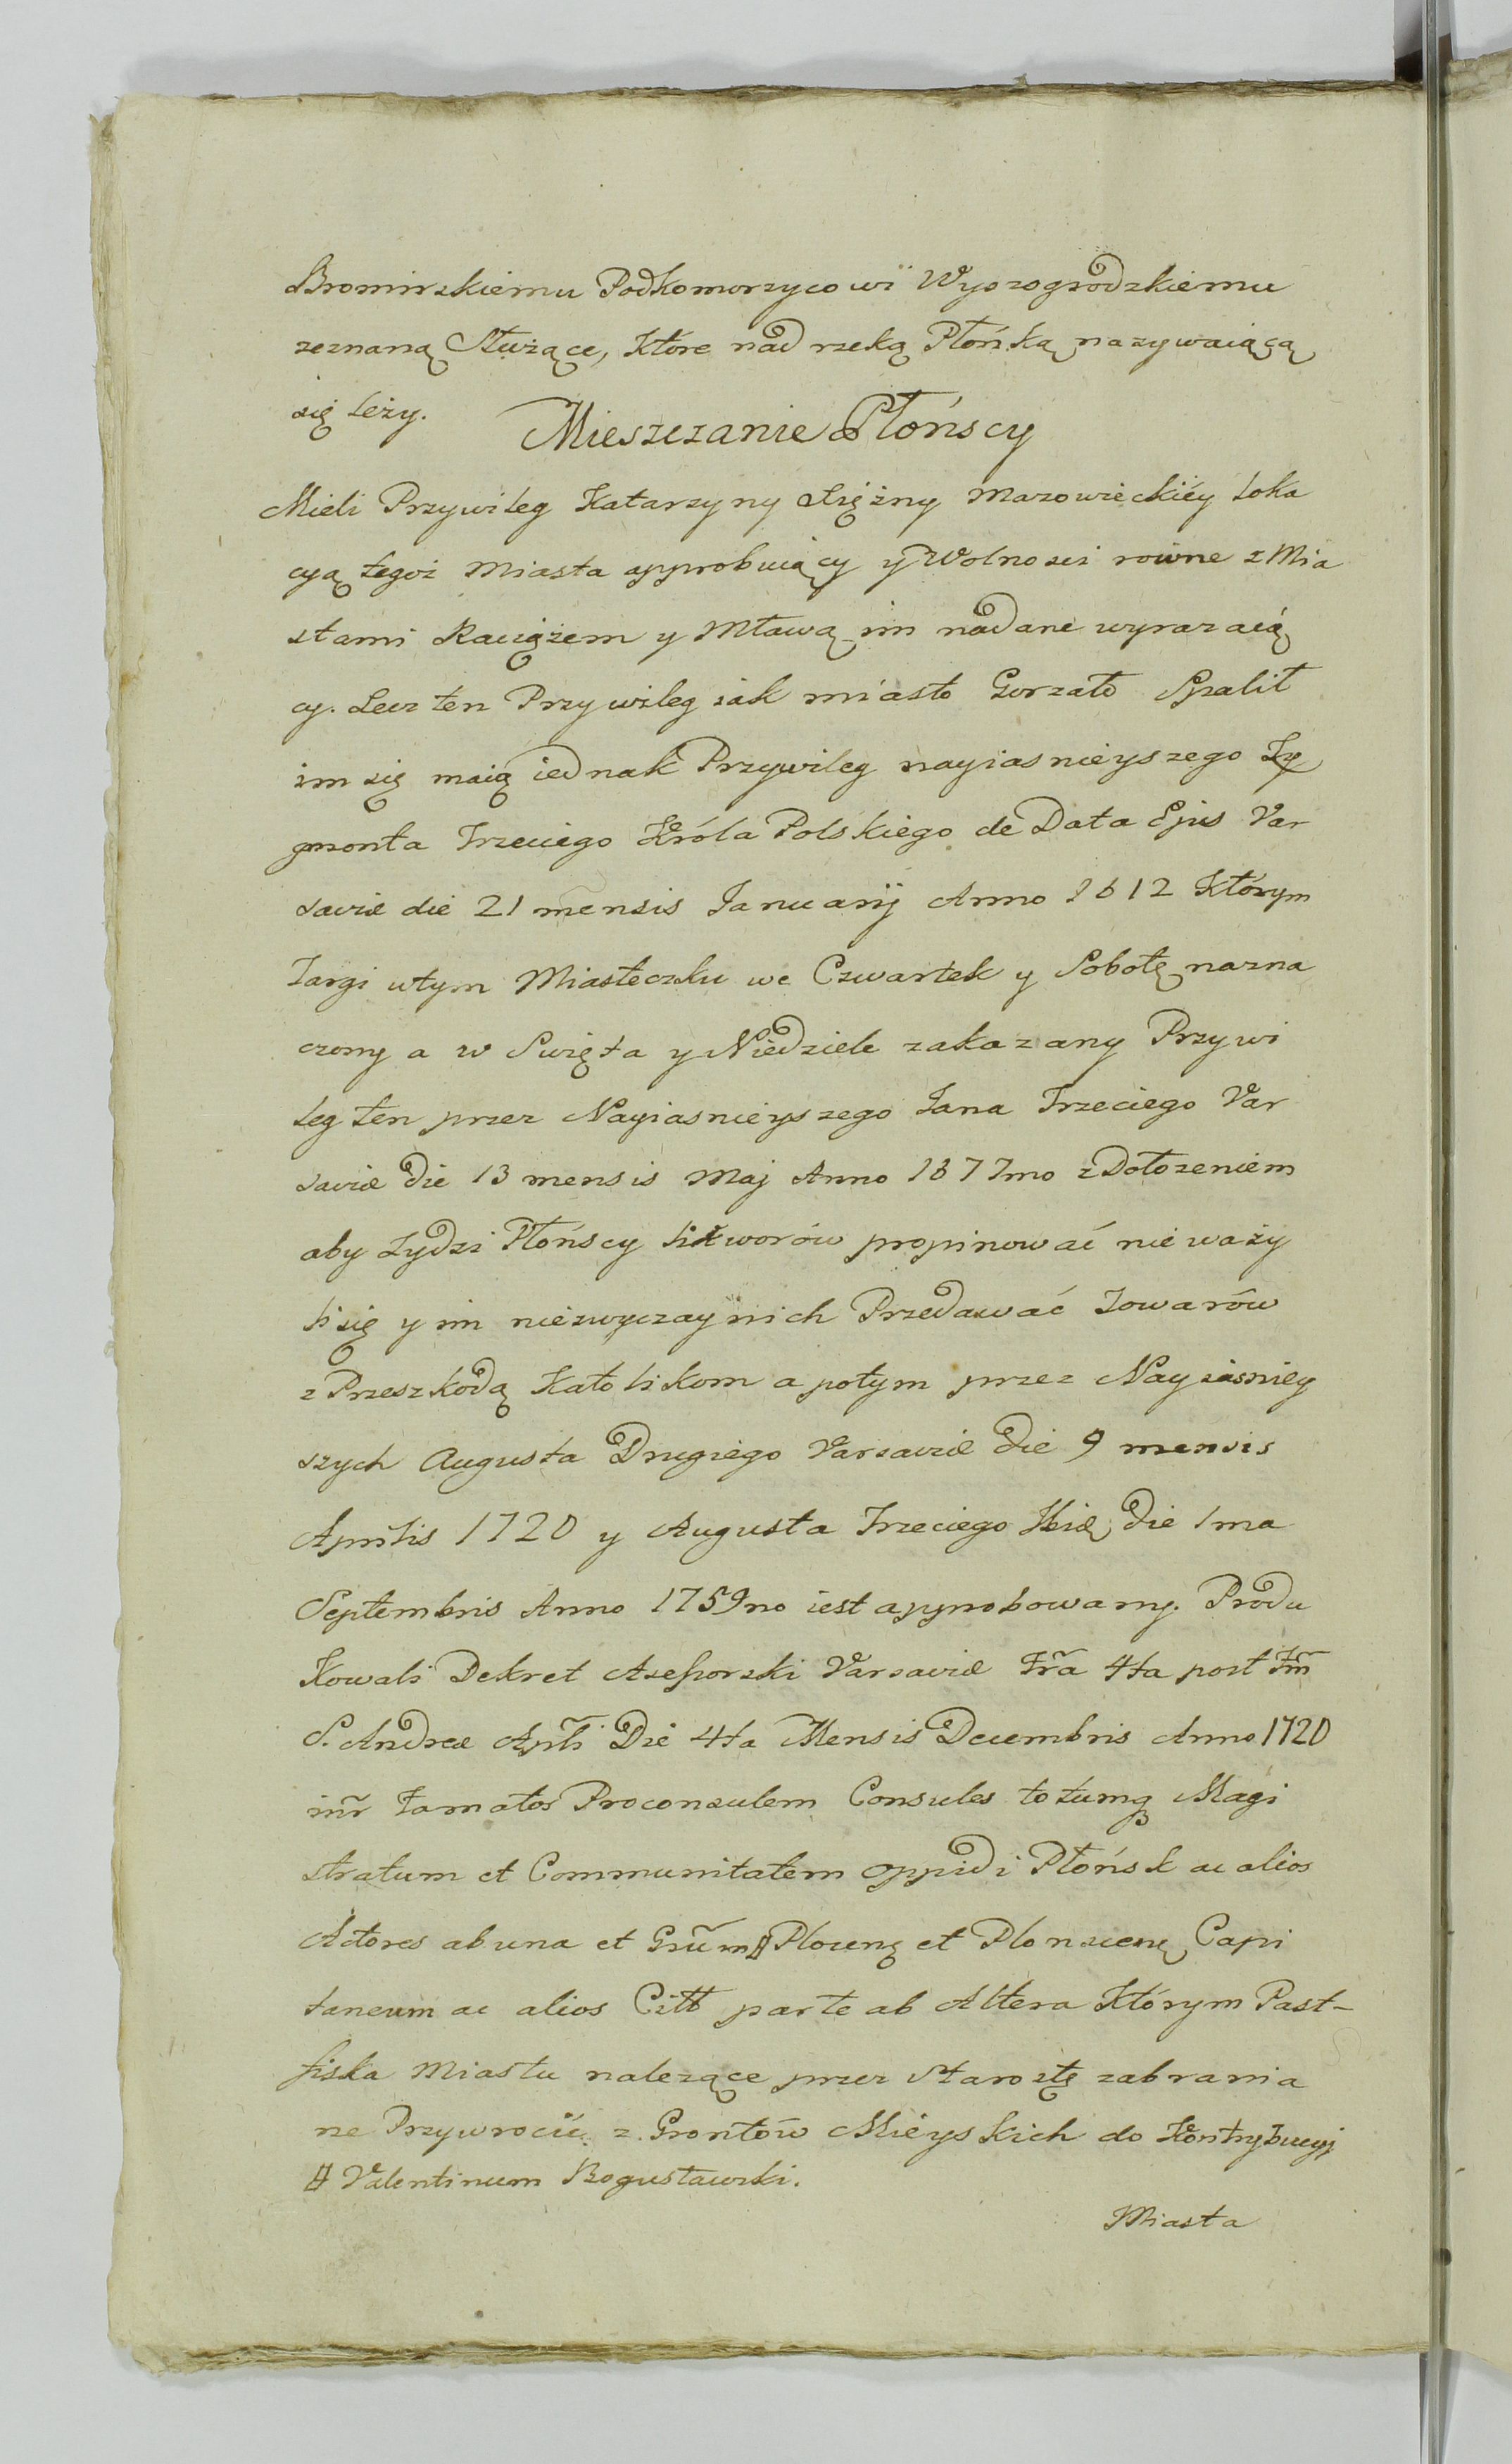 Bromirskiemu Podkomorzycowi Wyszogrodzkiemu
zeznaną Służące, które nad rzeką Płónką nazywaiącą
się leży.
Mieszczanie Płońscy
Mieli Przywileg Katarzyny Xiężny Mazowieckiéy loka
cyą tegoż Miasta approbuiący y Wolnosci rowne z Mia
stami Raciążem y Mławą im nadane wyrazaią
cy. Lecz ten Przywileg iak miasto Gorzało Spalił
im się maią iednak Przywileg nayiasnieyszego Zy
gmonta Trzeciego Króla Polskiego de Data Ejus Var
saviæ die 21 mensis Januarij Anno 1612 którym
Targi wtym Miasteczku we Czwartek y Sobotę nazna
czony a w Swięta y Niedziele zakazany Przywi
leg ten przez Nayiasnieyszego Jana Trzeciego Var
saviæ Die 13 mensis Maj Anno 1677mo z Dołozeniem
aby Zydzi Płońscy likworów propinować nie waży
li się y im niezwyczaynich Przedawać Towarów
z Przeszkodą Katolikom a potym przez Nayiasniey
szych Augusta Drugiego Varsaviæ Die 9 mensis
Aprilis 1720 y Augusta Trzeciego Ibid. Die 1ma
Septembris Anno 1759no iest approbowany. Produ
kowali Dekret Assessorski Varsaviæ Fr̃a 4ta post Fm̃
S. Andreæ Apl̃i Die 4ta Mensis Decembris Anno 1720
inr̃ Famatos Proconsulem Consules totumq Magi
stratum et Communitatem oppidi Płońsk ac alios
Actores ab una et Grũm # Plocens et Plonscens Capi
taneum ac alios Citt parte ab Altera którym Past-
fiska Miastu należące przez Starostę zabrania
ne Przywrocić z Grontów Mieyskich do Kontrybucyi
# Valentinum Bogusławski.
Miasta